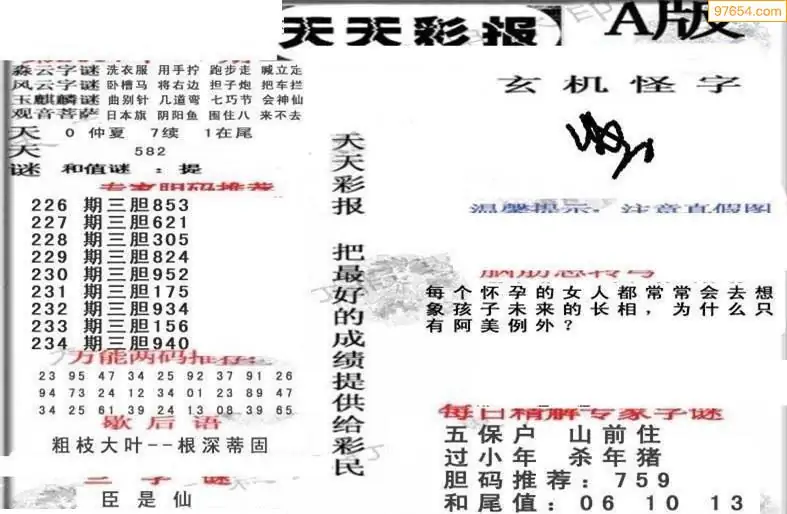 97654.com
天天彩报
A版
淼云字谜 洗衣服 用手拧 跑步走 喊立定
风云字谜 卧槽马 将右边 担子炮 把车拦
玉麒麟谜 曲别针 几道弯 七巧节 会神仙
观音菩萨 日本旗 阴阳鱼 围住八 来不去
天 0 仲夏 7续 1在尾
天 582
谜 和值谜 : 提
专家胆码推荐
226 期三胆853
227 期三胆621
228 期三胆305
229 期三胆824
230 期三胆952
231 期三胆175
232 期三胆934
233 期三胆156
234 期三胆940
万能两码推荐
23 95 47 34 25 92 37 91 26
94 73 24 12 34 01 23 89 47
34 25 61 39 24 13 08 39 65
歇后语
粗枝大叶--根深蒂固
三字谜
臣是仙
天天彩报 把最好的成绩提供给彩民
玄机怪字
温馨提示：注意真假图
脑筋急转弯
每个怀孕的女人都常常会去想
象孩子未来的长相，为什么只
有阿美例外？
每日精解专家字谜
五保户 山前住
过小年 杀年猪
胆码推荐: 759
和尾值: 06 10 13